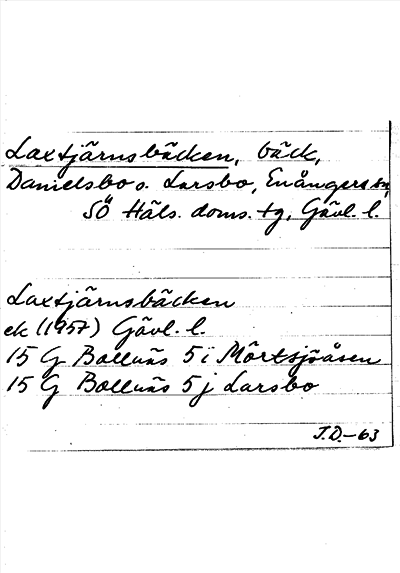 Laxtjärnsbäcken, bäck,
Danielsbo o. Larsbo, Enångers sn,
SÖ Häls. doms. tg, Gävl. l.
Laxtjärnsbäcken
ek (1957) Gävl. l.
15 G Bollnäs 5 i Mörtsjöåsen
15 G Bollnäs 5 j Larsbo
J.D.-63